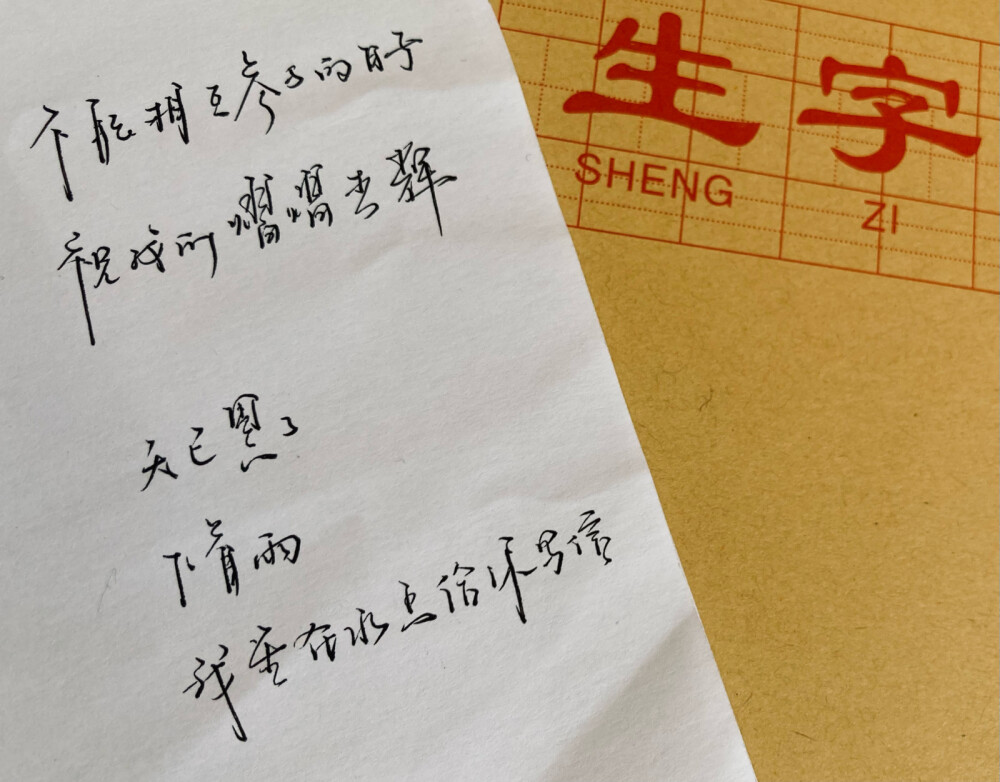 不能相互参与的日子
祝我们熠熠生辉
天已黑了
下着雨
我坐在给你写信
生字
SHENG ZI